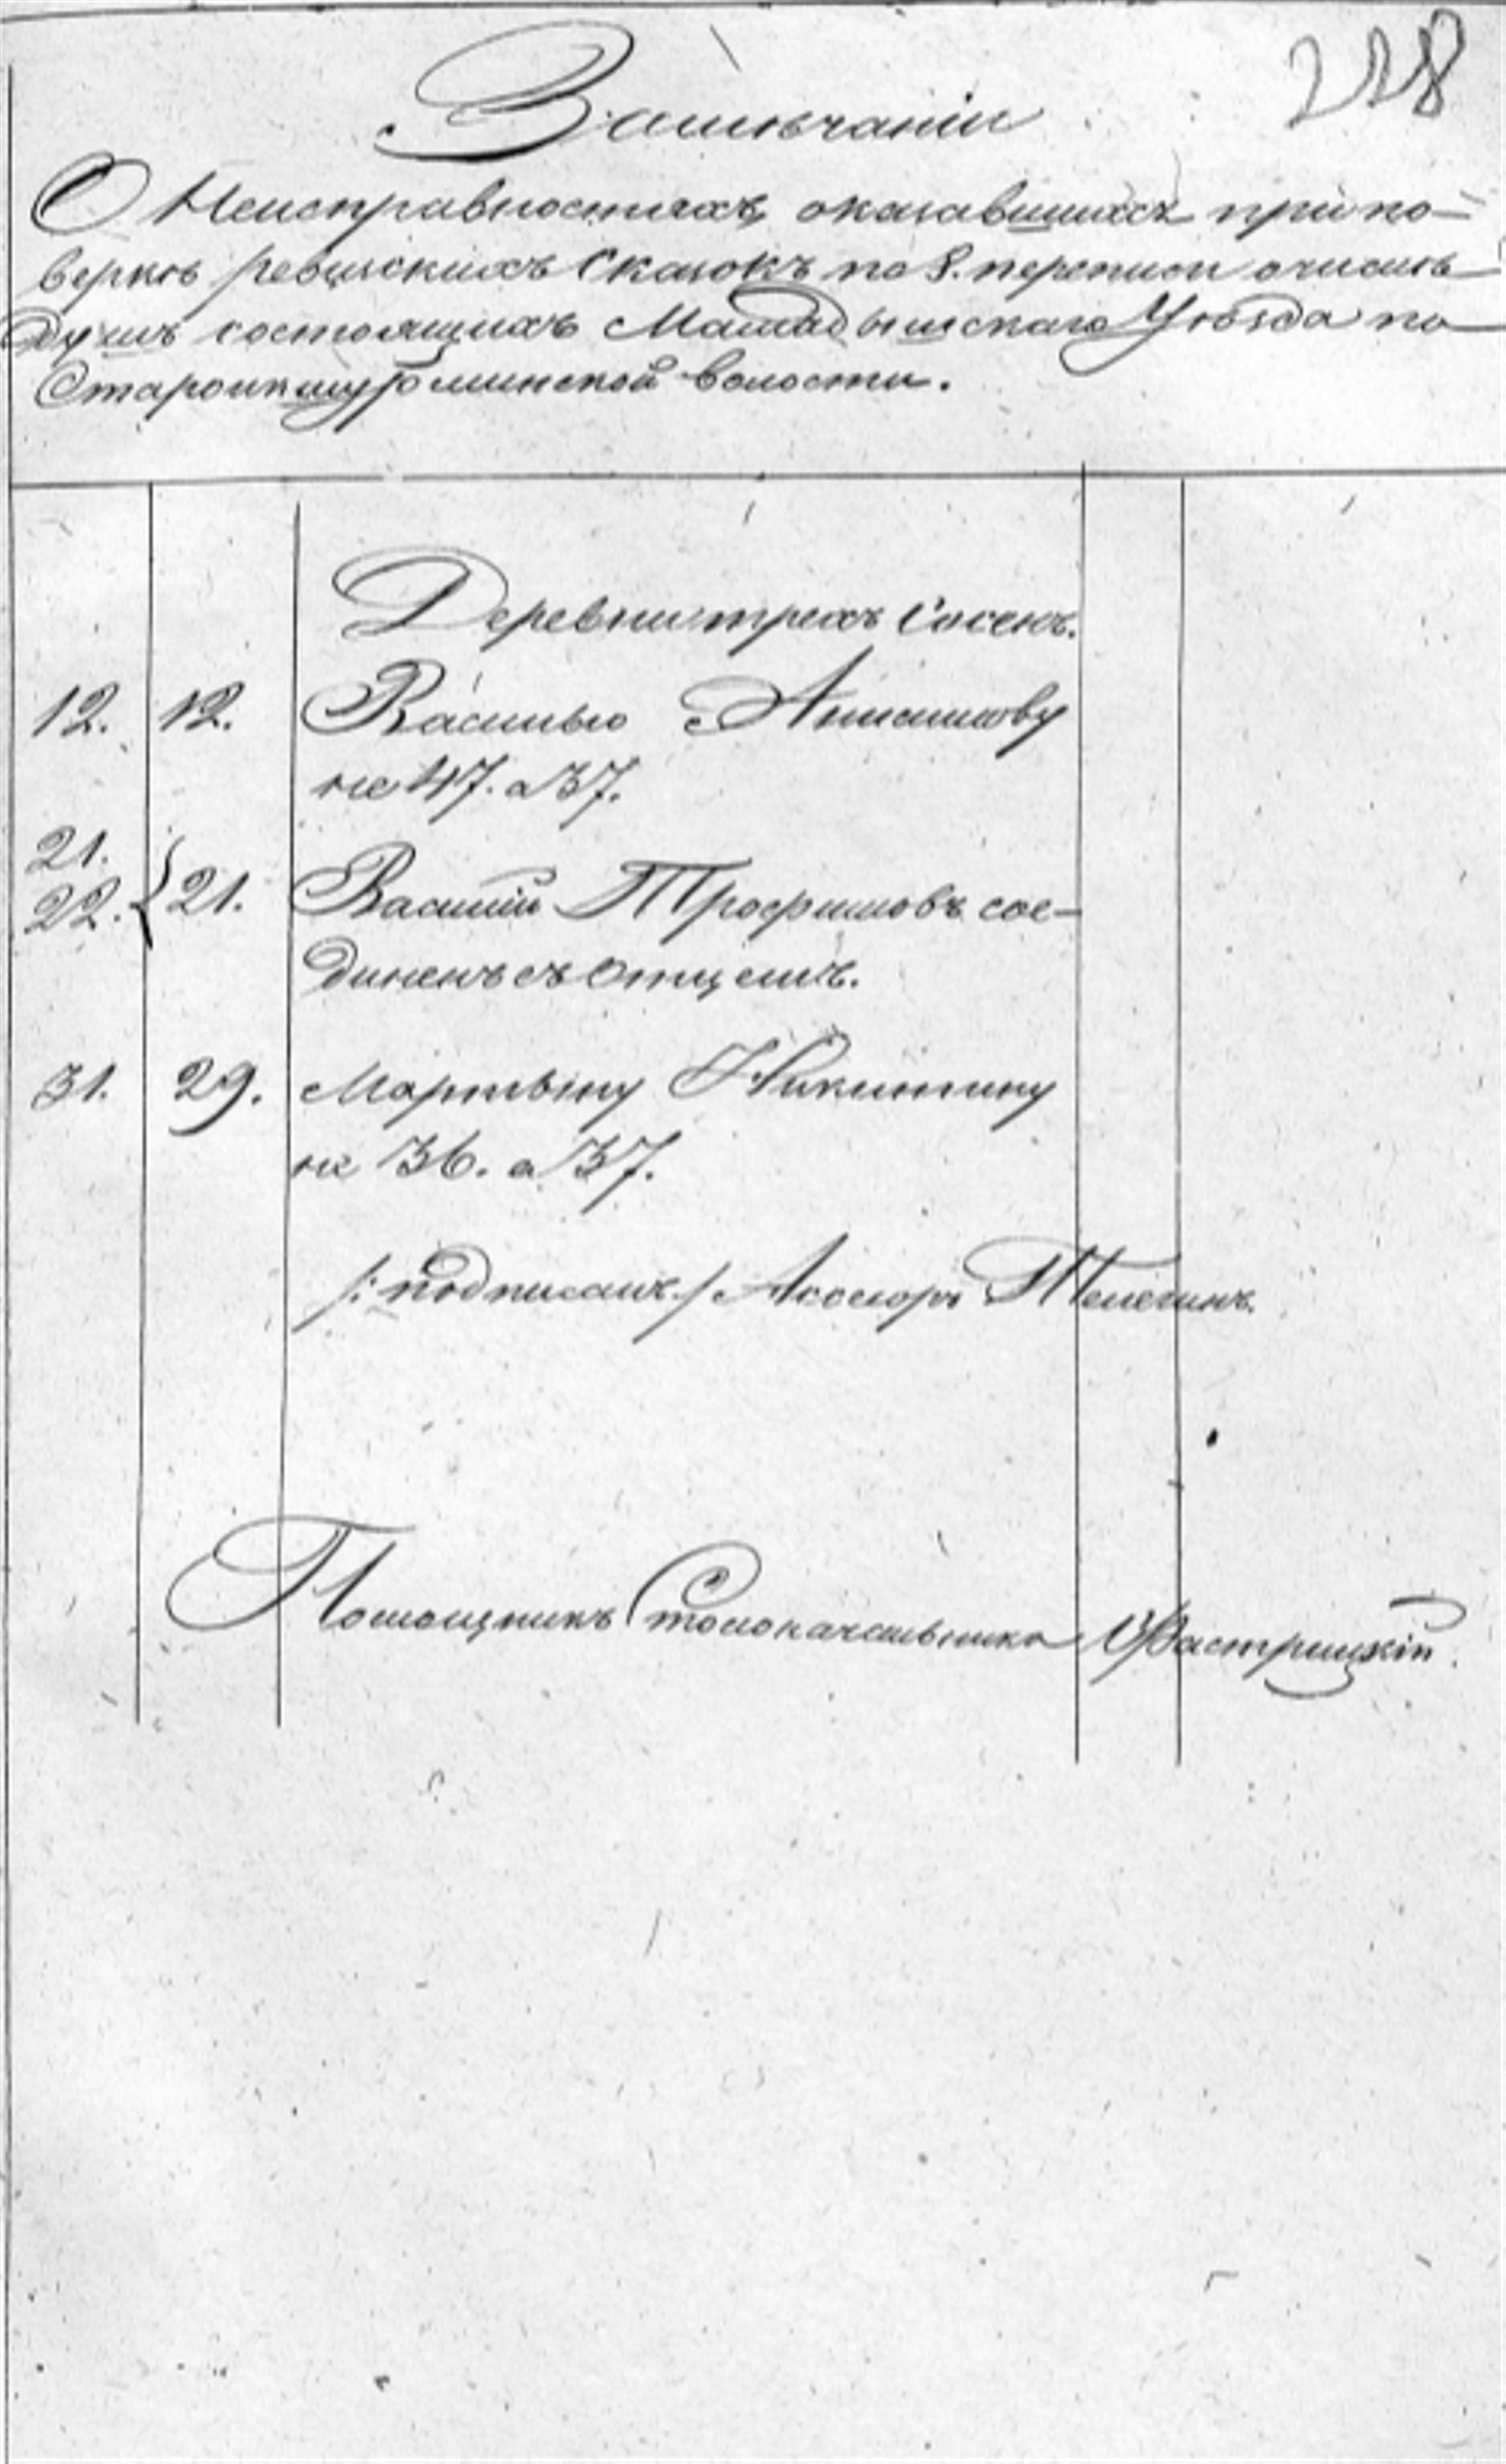 228
Замѣчаніи
О Неисправностяхъ оказавшихся при по-
веркѣ ревижскихъ Сказокъ по 8. переписи о числѣ
душъ состоящихъ Мамадышскаго Уѣзда по
Староикшурминской волости.
Деревни трехъ Сосенъ.
12. 12. Василью Анисимову
не 47. а 37.
21.
22. } 21. Василій Трофимовъ сое-
диненъ съ отцемъ.
31. 29. Мартыну Никитину
не 36. а 37.
/: подписалъ :/ Асессоръ Телегинъ.
Помощникъ Столоначальника